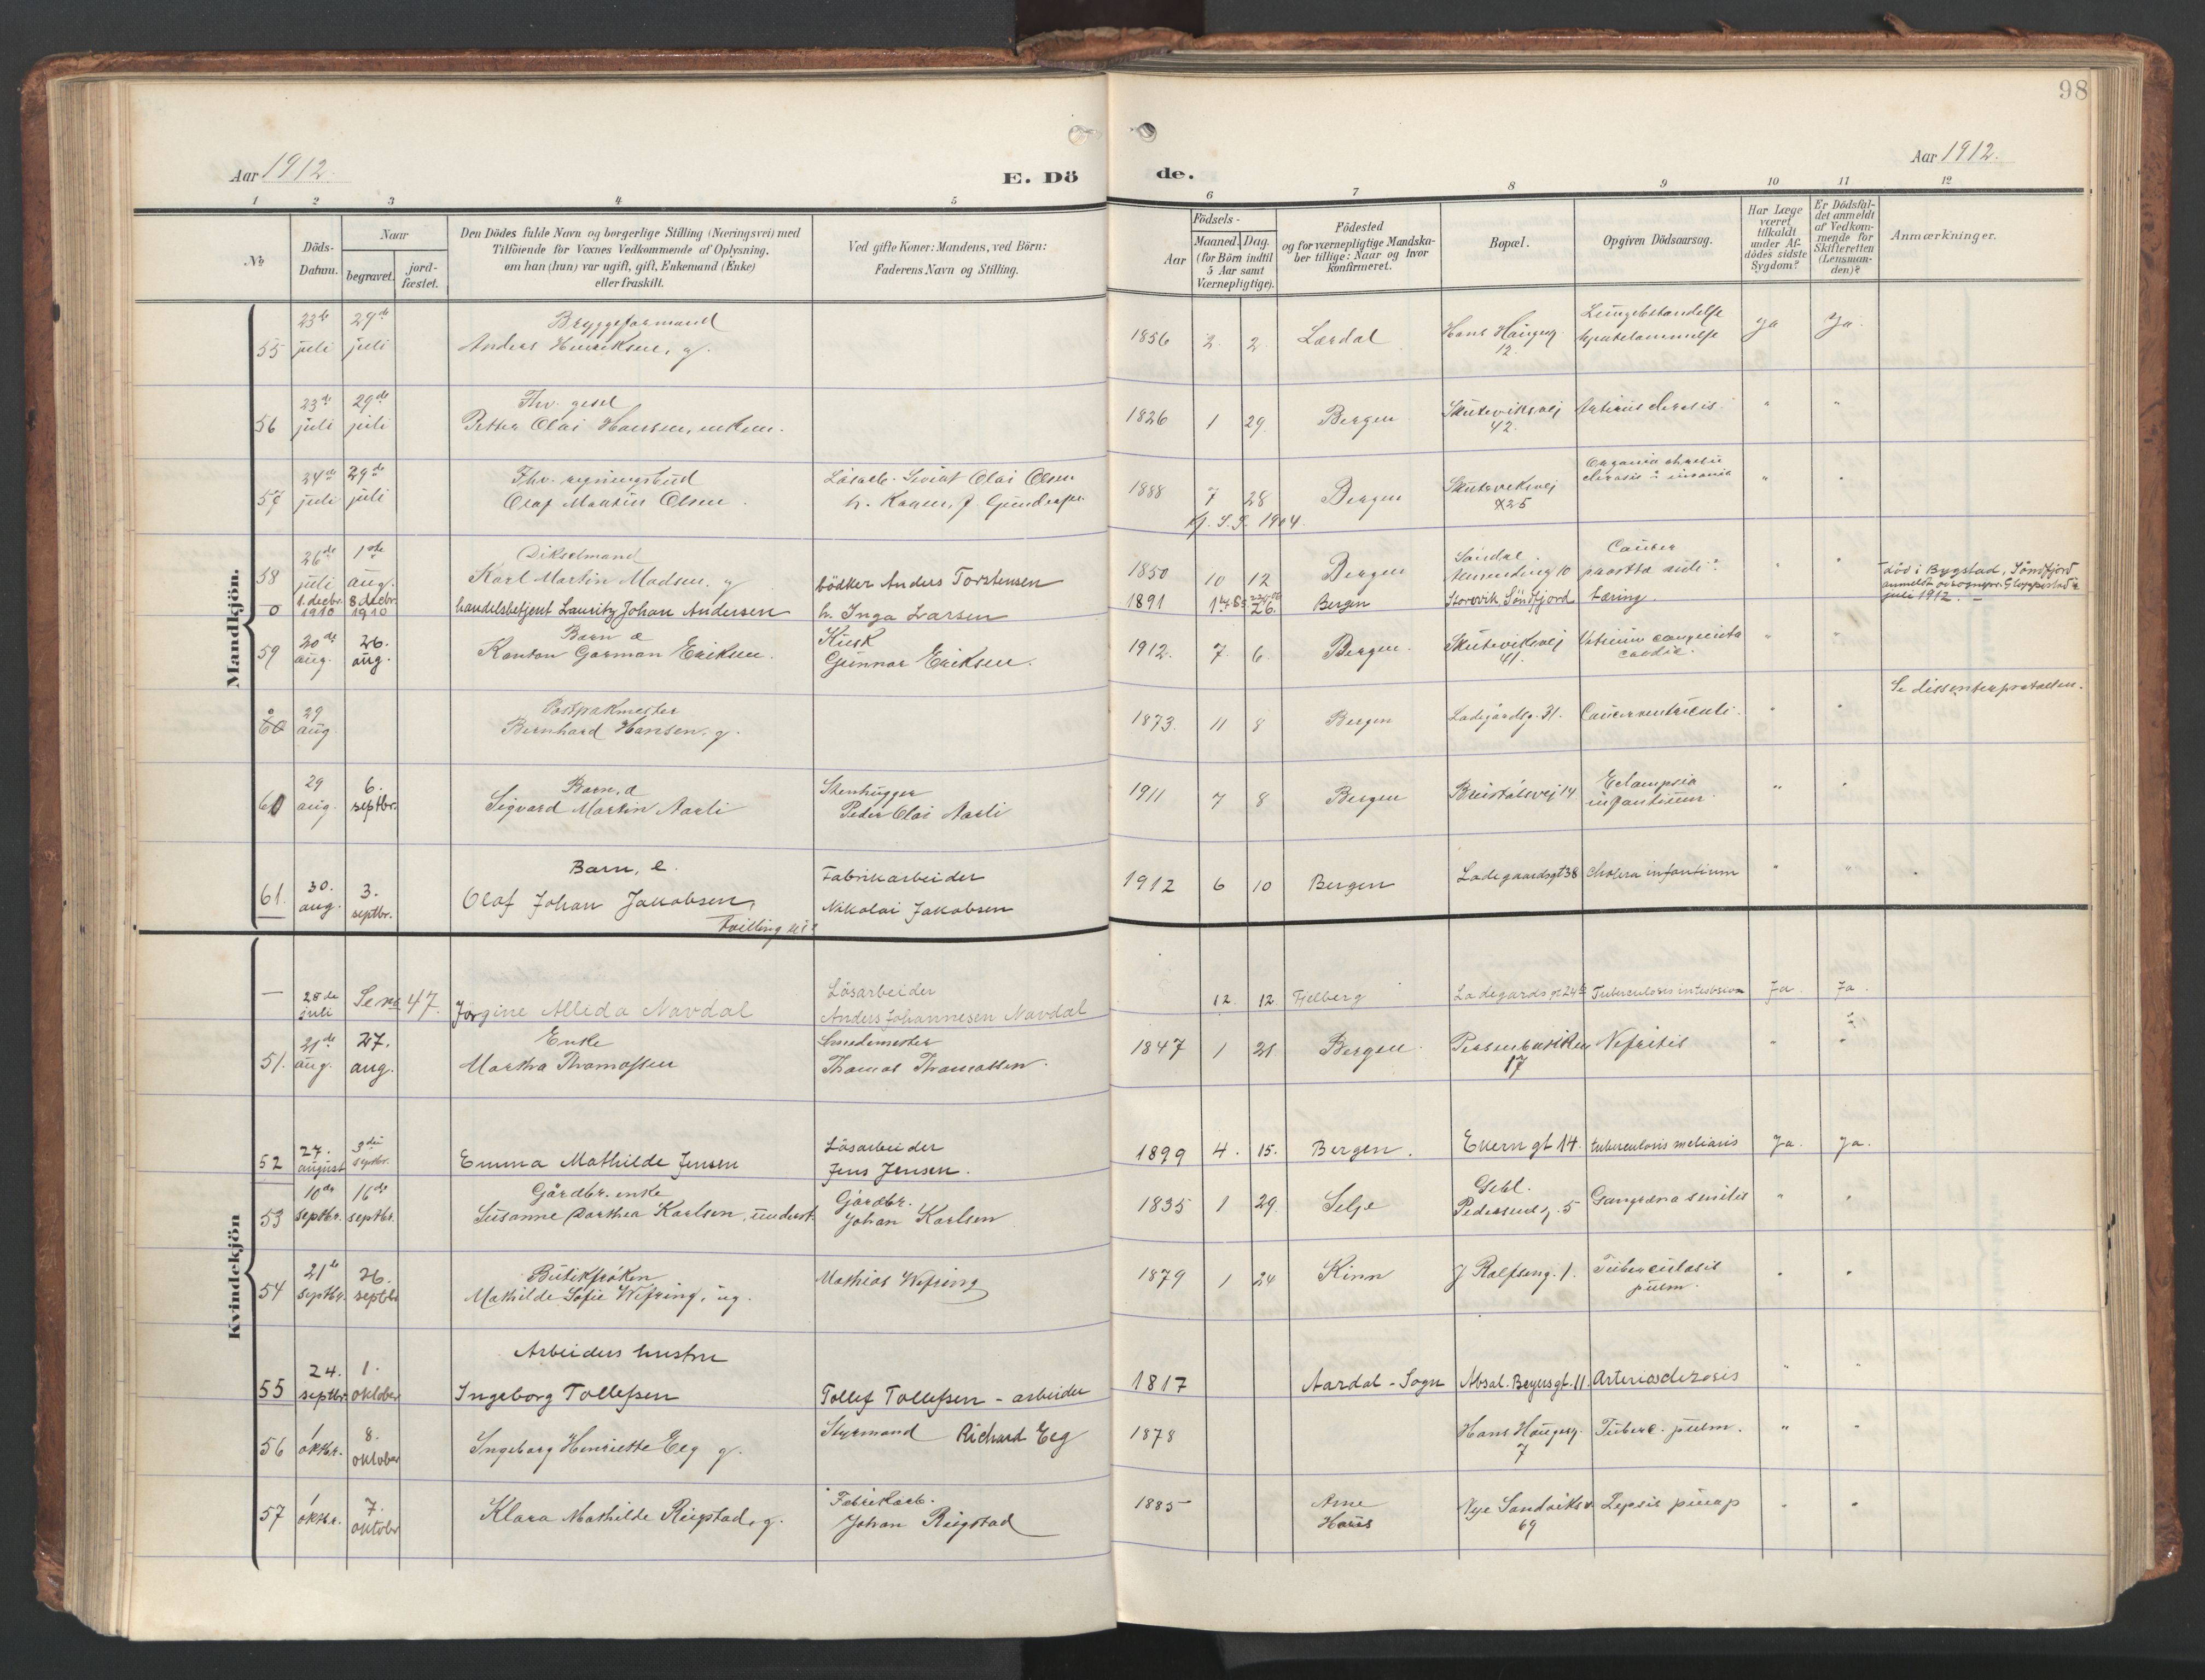 98
Aar 1912.
E. Dö
de.
Aar 1912.
1 2 3 4 5 6 7 8 9 10 11 12
No
Döds-
Datum.
Naar
begravet.
jord-
fæstet.
Den Dödes fulde Navn og borgerlige Stilling (Næringsvei) med
Tilföiende for Voxnes Vedkommende af Oplysning,
om han (hun) var ugift, gift, Enkemand (Enke)
eller fraskilt.
Ved gifte Koner: Mandens, ved Börn:
Faderens Navn og Stilling.
Födsels-
Aar
Maaned. Dag.
(for Börn indtil
5 Aar samt
Værnepligtige).
Födested
og for værnepligtige Mandska-
ber tillige: Naar og hvor
konfirmeret.
Bopæl.
Opgiven Dödsaarsag.
Har Læge
været
tilkaldt
under Af-
dödes sidste
Sygdom?
Er Dödsfal-
det anmeldt
af Vedkom-
mende for
Skifteretten
(Lensman-
den)?
Anmærkninger.
Mandkjön.
23de 29de Bryggeformand
55 juli juli Anders Henriksen, g. 1856 2. 2. Lærdal Hans Haugesg. 12. Ja Ja.
23de 29de Fhv. gesel
56 juli juli Petter Olai Hansen, enkem. 1826 1 29. Bergen Skuteviksvej 42. " "
24de 29de Fhv. regningsbud
57 juli juli Olaf Martin Olsen 1888 7 28 Bergen Skuteviksvej 25 " "
1904.
26de 1ste Dikselmand
58 juli aug. Karl Martin Madsen, g 1850 10 12 Bergen Cancer " "
0 1. decbr. 1910 8 decbr. 1910 handelsbetjent Lauritz Johan Andersen
bödker Anders Torstensen
h. Inga Larsen
1891 26. Bergen Storevik, Söndfjord tæring.
död i Bygstad, Söndfjord
juli 1912. –
20de 26. Barn æ Kusk
59 aug. aug. Karsten Garman Eriksen. Gunnar Eriksen. 1912. 7. 6. Bergen. Skuteviksvej 41. " "
Se dissenterprotokollen.
29 Postpakmester
60 aug. Bernhard Hansen, g. 1873. 11 8 Bergen Ladegårdsg. 31. Cancer ventriculi. " "
29 6. Barn, æ Stenhugger
60 aug. septbr. Sigvard Martin Aarli Peder Olai Aarli 1911 7 8 Bergen 14 Eclampsia infantium. " "
30. 3. Barn, e. Fabrikarbeider
61. aug. septbr. Olaf Johan Jakobsen, Nikolai Jakobsen 1912 6 10 Bergen Ladegaardsgt 38 Cholera infantium " "
Kvindekjön
— 28de juli Se no 47. Jörgine Allida Navdal Lösarbeider Anders Johannesen Navdal 12. 12. Fjelberg Ladegårdsgt 24 Ja. Ja.
21de 27. Enke Smedemester
51. aug. aug. Martha Thomassen Thomas Thomassen. 1847 1 21 Bergen. 17 Nefritis " "
27. 3die Lösarbeider
52 august septbr. Emma Mathilde Jensen Jens Jensen. 1899 4. 15. Bergen. Ekerngt 14. tuberculosis meliaris Ja. Ja.
10de 16de Gårdbr. enke Gårdbr.
53 septbr. septbr. Susanne Dorthea Karlsen, underst. Johan Karlsen 1835 1 29. Selje Gebl. Pedersens g. 5 Gangræna senilis " "
21de 26. Butikfröken
54 septbr. septbr Mathilde Sofie Wefring, ug. Mathias Wefring 1879 1 24 Kinn J Rolfseng. 1. Tuberculosis pulm. " "
24. 1. Arbeiders hustru
55 septbr. oktober Ingeborg Tollefsen Tollef Tollefsen – arbeider 1817 Aardal – Sogn Absal. Beyersgt. 11. Arteriosclerosis " "
1 8.
56 oktbr. oktober Ingeborg Henriette Eeg g. Styrmand Richard Eeg 1878 Hans Haugesg. 7 Tuberc. pulm. " "
1 7. Fabrikarb.
57 oktbr. oktober Klara Mathilde Rigstad, g. Johan Rigstad 1885 Arne Haus Nye Sandviksv. 69 " "